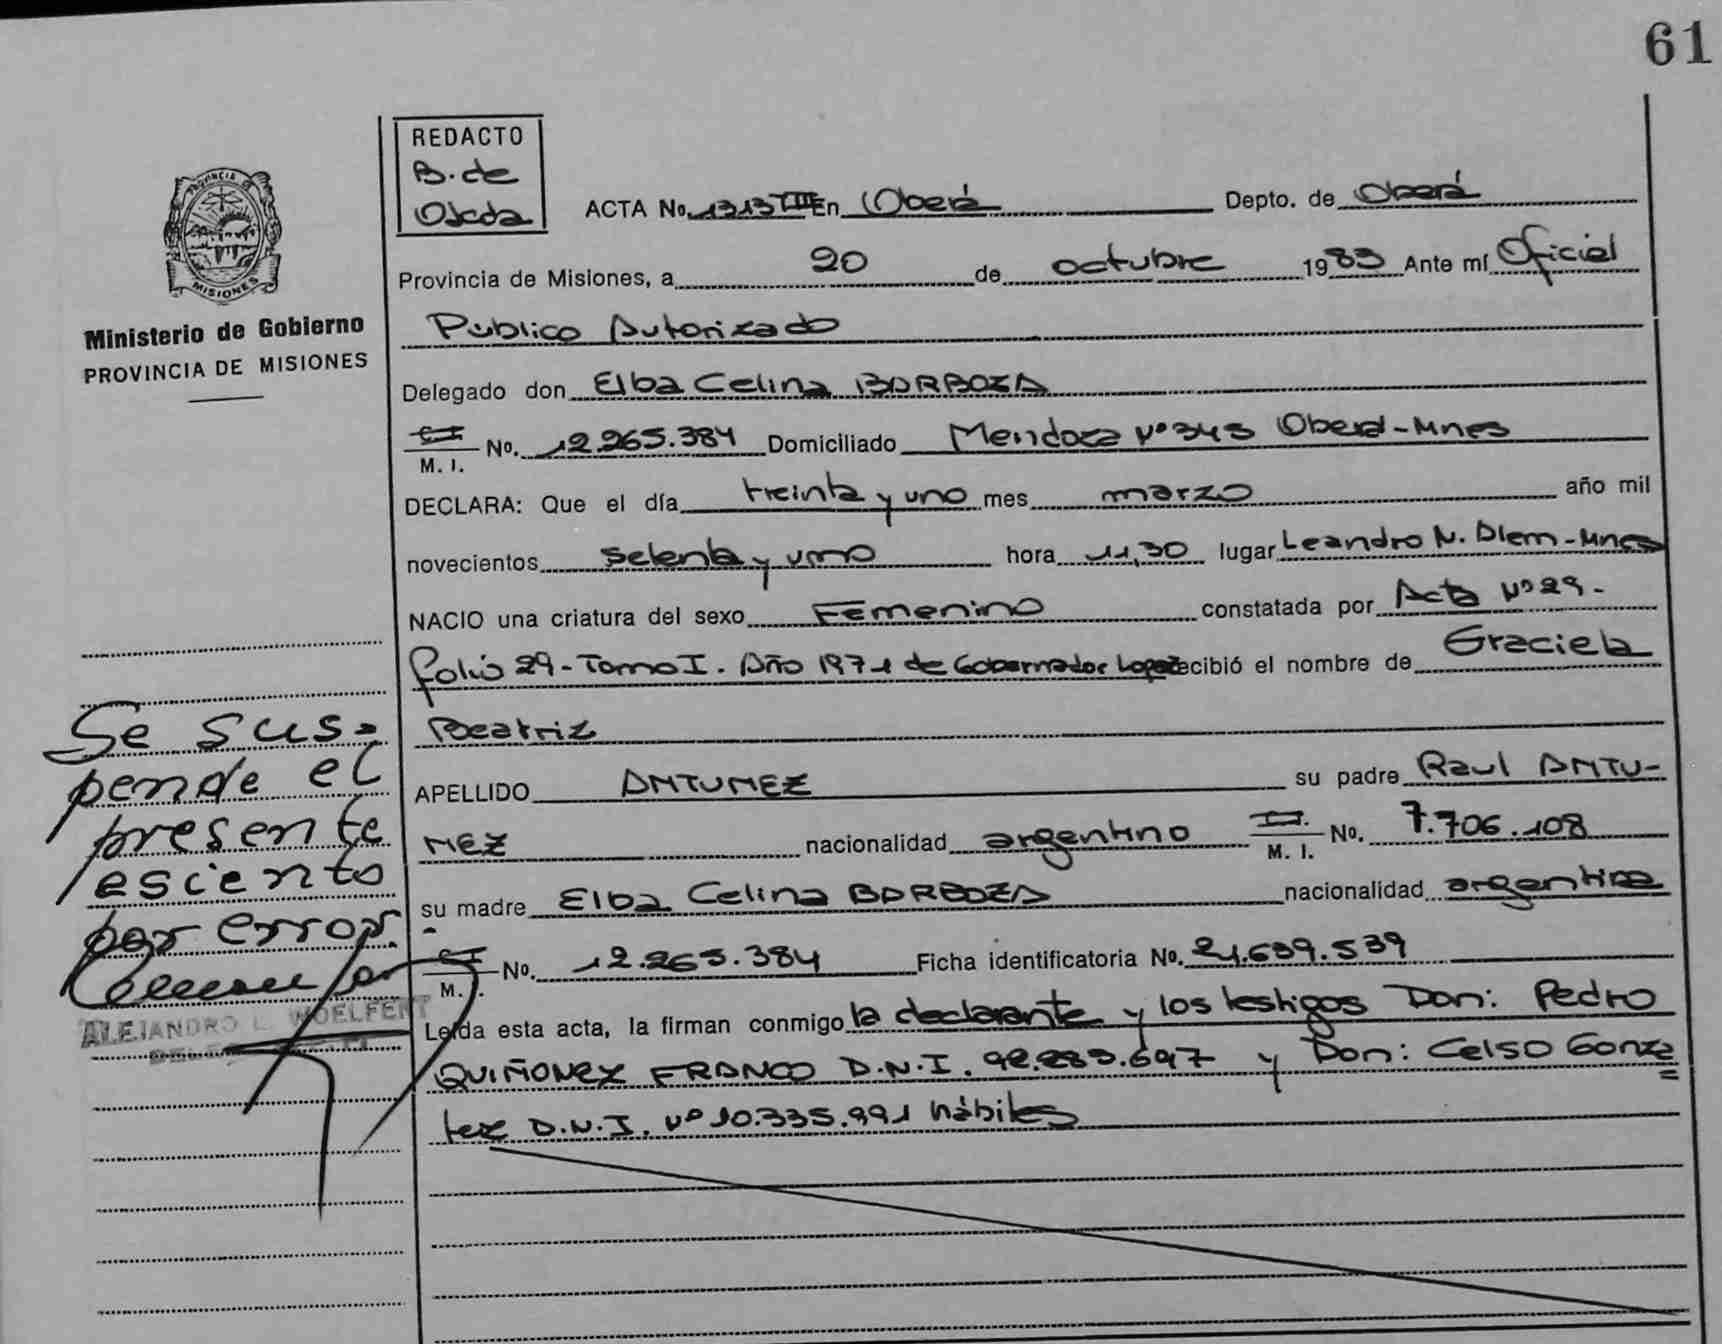 61
REDACTO
B. de
Ojeda
ACTA No. 1313 TIII En Oberá Depto. de Oberá
PROVINCIA DE
MISIONES
Provincia de Misiones, a 20 de octubre 1983 Ante mí Oficial
Ministerio de Gobierno
PROVINCIA DE MISIONES
Público Autorizado
Delegado don Elba Celina BARBOZA
M. I. No. 12.265.384 Domiciliado Mendoza Nº 345 Oberá-Mnes
DECLARA: Que el día treinta y uno mes marzo año mil
novecientos setenta y uno hora 11,30 lugar Leandro N. Alem-Mnes
NACIO una criatura del sexo Femenino constatada por Acta Nº 29-
folio 29-Tomo I. Año 1971 de Gobernador Lopez recibió el nombre de Graciela
Beatriz
APELLIDO ANTUNEZ su padre Raul ANTU-
NEZ nacionalidad argentino M. I. No. 7.706.108
su madre Elba Celina BARBOZA nacionalidad argentina
M. I. No. 12.265.384 Ficha identificatoria No. 21.639.539
Leída esta acta, la firman conmigo la declarante y los testigos Don: Pedro
QUIÑONEZ FRANCO D.N.I. 92.283.697 y Don: Celso Gonza
lez D.N.I. Nº 10.335.991 hábiles
Se sus-
pende el
presente
esciento
por error.
ALEJANDRO L. WOELFERT